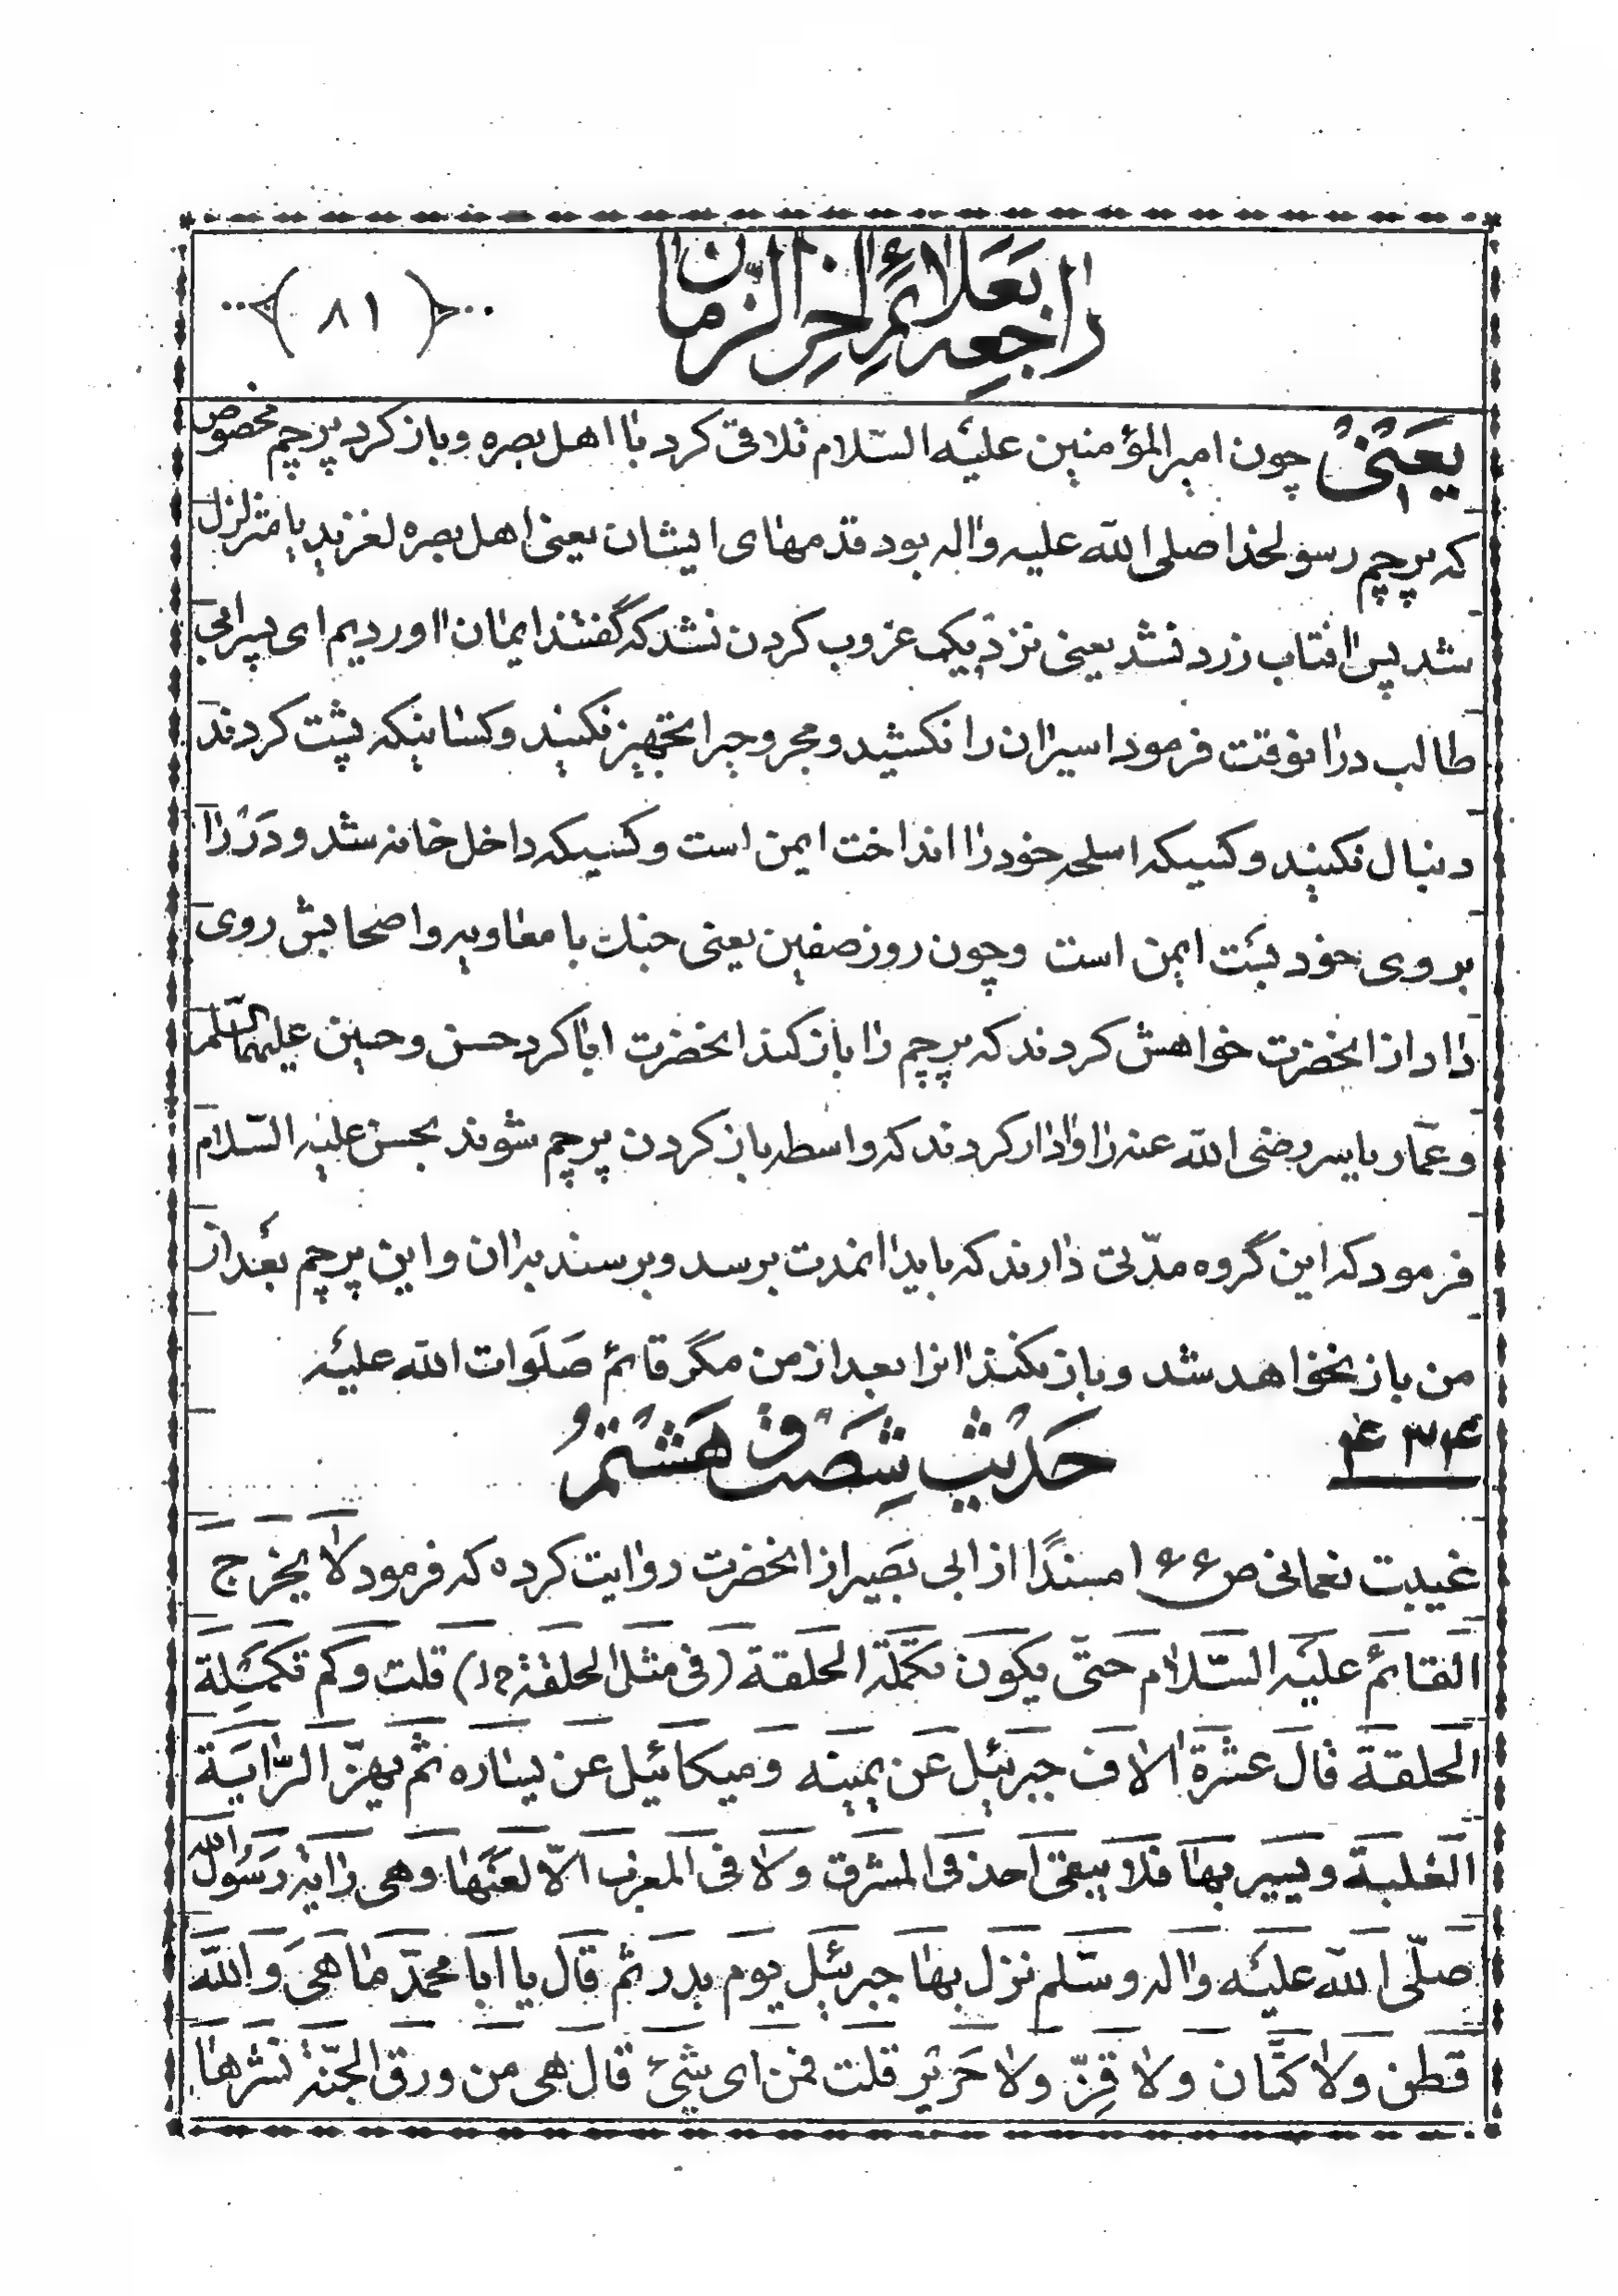 راجعه بعلائم اخر الزمان
(۸۱)
یعنی چون امیرالمؤمنین علیه السّلام تلاقی کرد با اهل بصره و باز کرد پرچم مخصوص
که پرچم رسولخدا صلی الله علیه واله بود قدمهای ایشان یعنی اهل بصره لغزید یا متزلزل
شد پس افتاب زرد نشد یعنی نزدیک غروب کردن نشد که گفتند ایمان اوردیم ای پسر ابی
طالب در انوقت فرمود اسیران را نکشید و مجروحرا تجهیز نکنید و کسانیکه پشت کردند
دنبال نکنید و کسیکه اسلحه خود را انداخت ایمن است و کسیکه داخل خانه شد و در را
بروی خود بست ایمن است وچون روز صفین یعنی جنك با معاویه و اصحابش روی
داد از انحضرت خواهش کردند که پرچم را باز کند انحضرت ابا کرد حسن و حسین علیهما السلم
و عمّار یاسر رضی الله عنه را وادار کردند که واسطه باز کردن پرچم شوند بحسن علیه السّلام
فرمود که این گروه مدّتی دارند که باید انمدت برسد و برسند بران و این پرچم بعد از
من باز نخواهد شد و باز نکند انرا بعد از من مگر قائم صَلَوات الله علیه
۴۳۴ حَدیث شصت و هَشتم
غیبت نعمانی ص ۱۶۶ مسندًا از ابی بَصیر از انحضرت روایت کرده که فرمود لا یخرج
القائم علیه السّلام حتّی یکون تکملة الحلقة (فی مثل الحلقة خ‌ل) قلت وکم تکملة
الحلقة قال عشرة الاف جبرئیل عن یمینه ومیکائیل عن یساره ثم یهزّ الرّایة
الغلبة ویسیر بها فلا یبقی احد فی المشرق ولا فی المغرب الّا لعنها وهی رایة رسول الله
صلّی الله علیه واله وسّلم نزل بها جبرئیل یوم بدر ثم قال یا ابا محمّد ما هی والله
قطن ولا کتّان ولا قزّ ولا حَریر قلت فمن ای شیئ قال هی من ورق الجنّة نشرها